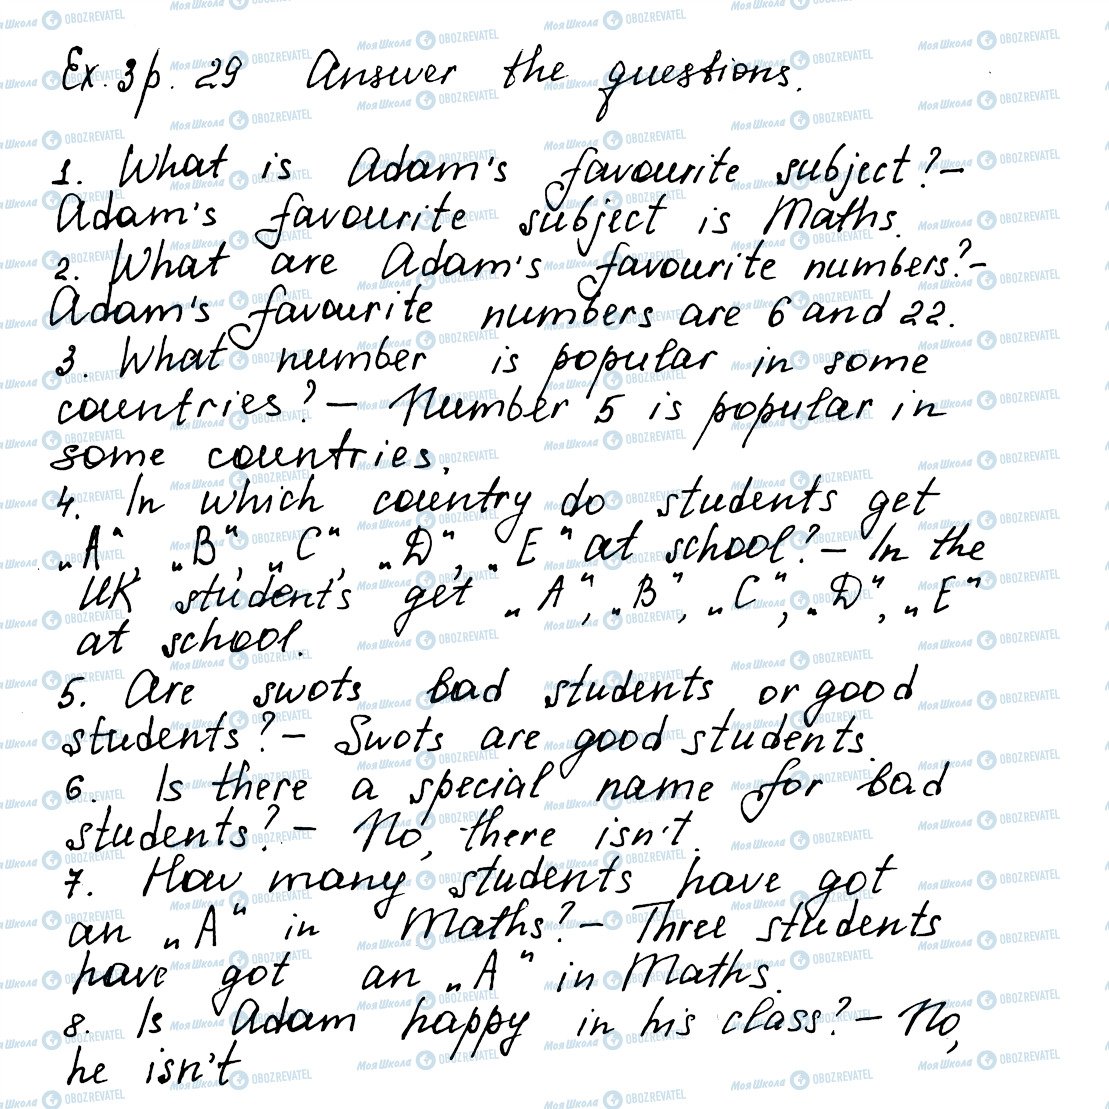 Ex. 3 p. 29 Answer the questions.
1. What is Adam's favourite subject? –
Adam's favourite subject is Maths.
2. What are Adam's favourite numbers? –
Adam's favourite numbers are 6 and 22.
3. What number is popular in some
countries? – Number 5 is popular in
some countries.
4. In which country do students get
„A", „B", „C", „D", „E" at school? – In the
UK students get „A", „B", „C", „D", „E"
at school.
5. Are swots bad students or good
students? – Swots are good students.
6. Is there a special name for bad
students? – No, there isn't.
7. How many students have got
an „A" in Maths? – Three students
have got an „A" in Maths.
8. Is Adam happy in his class? – No,
he isn't
МояШкола OBOZREVATEL